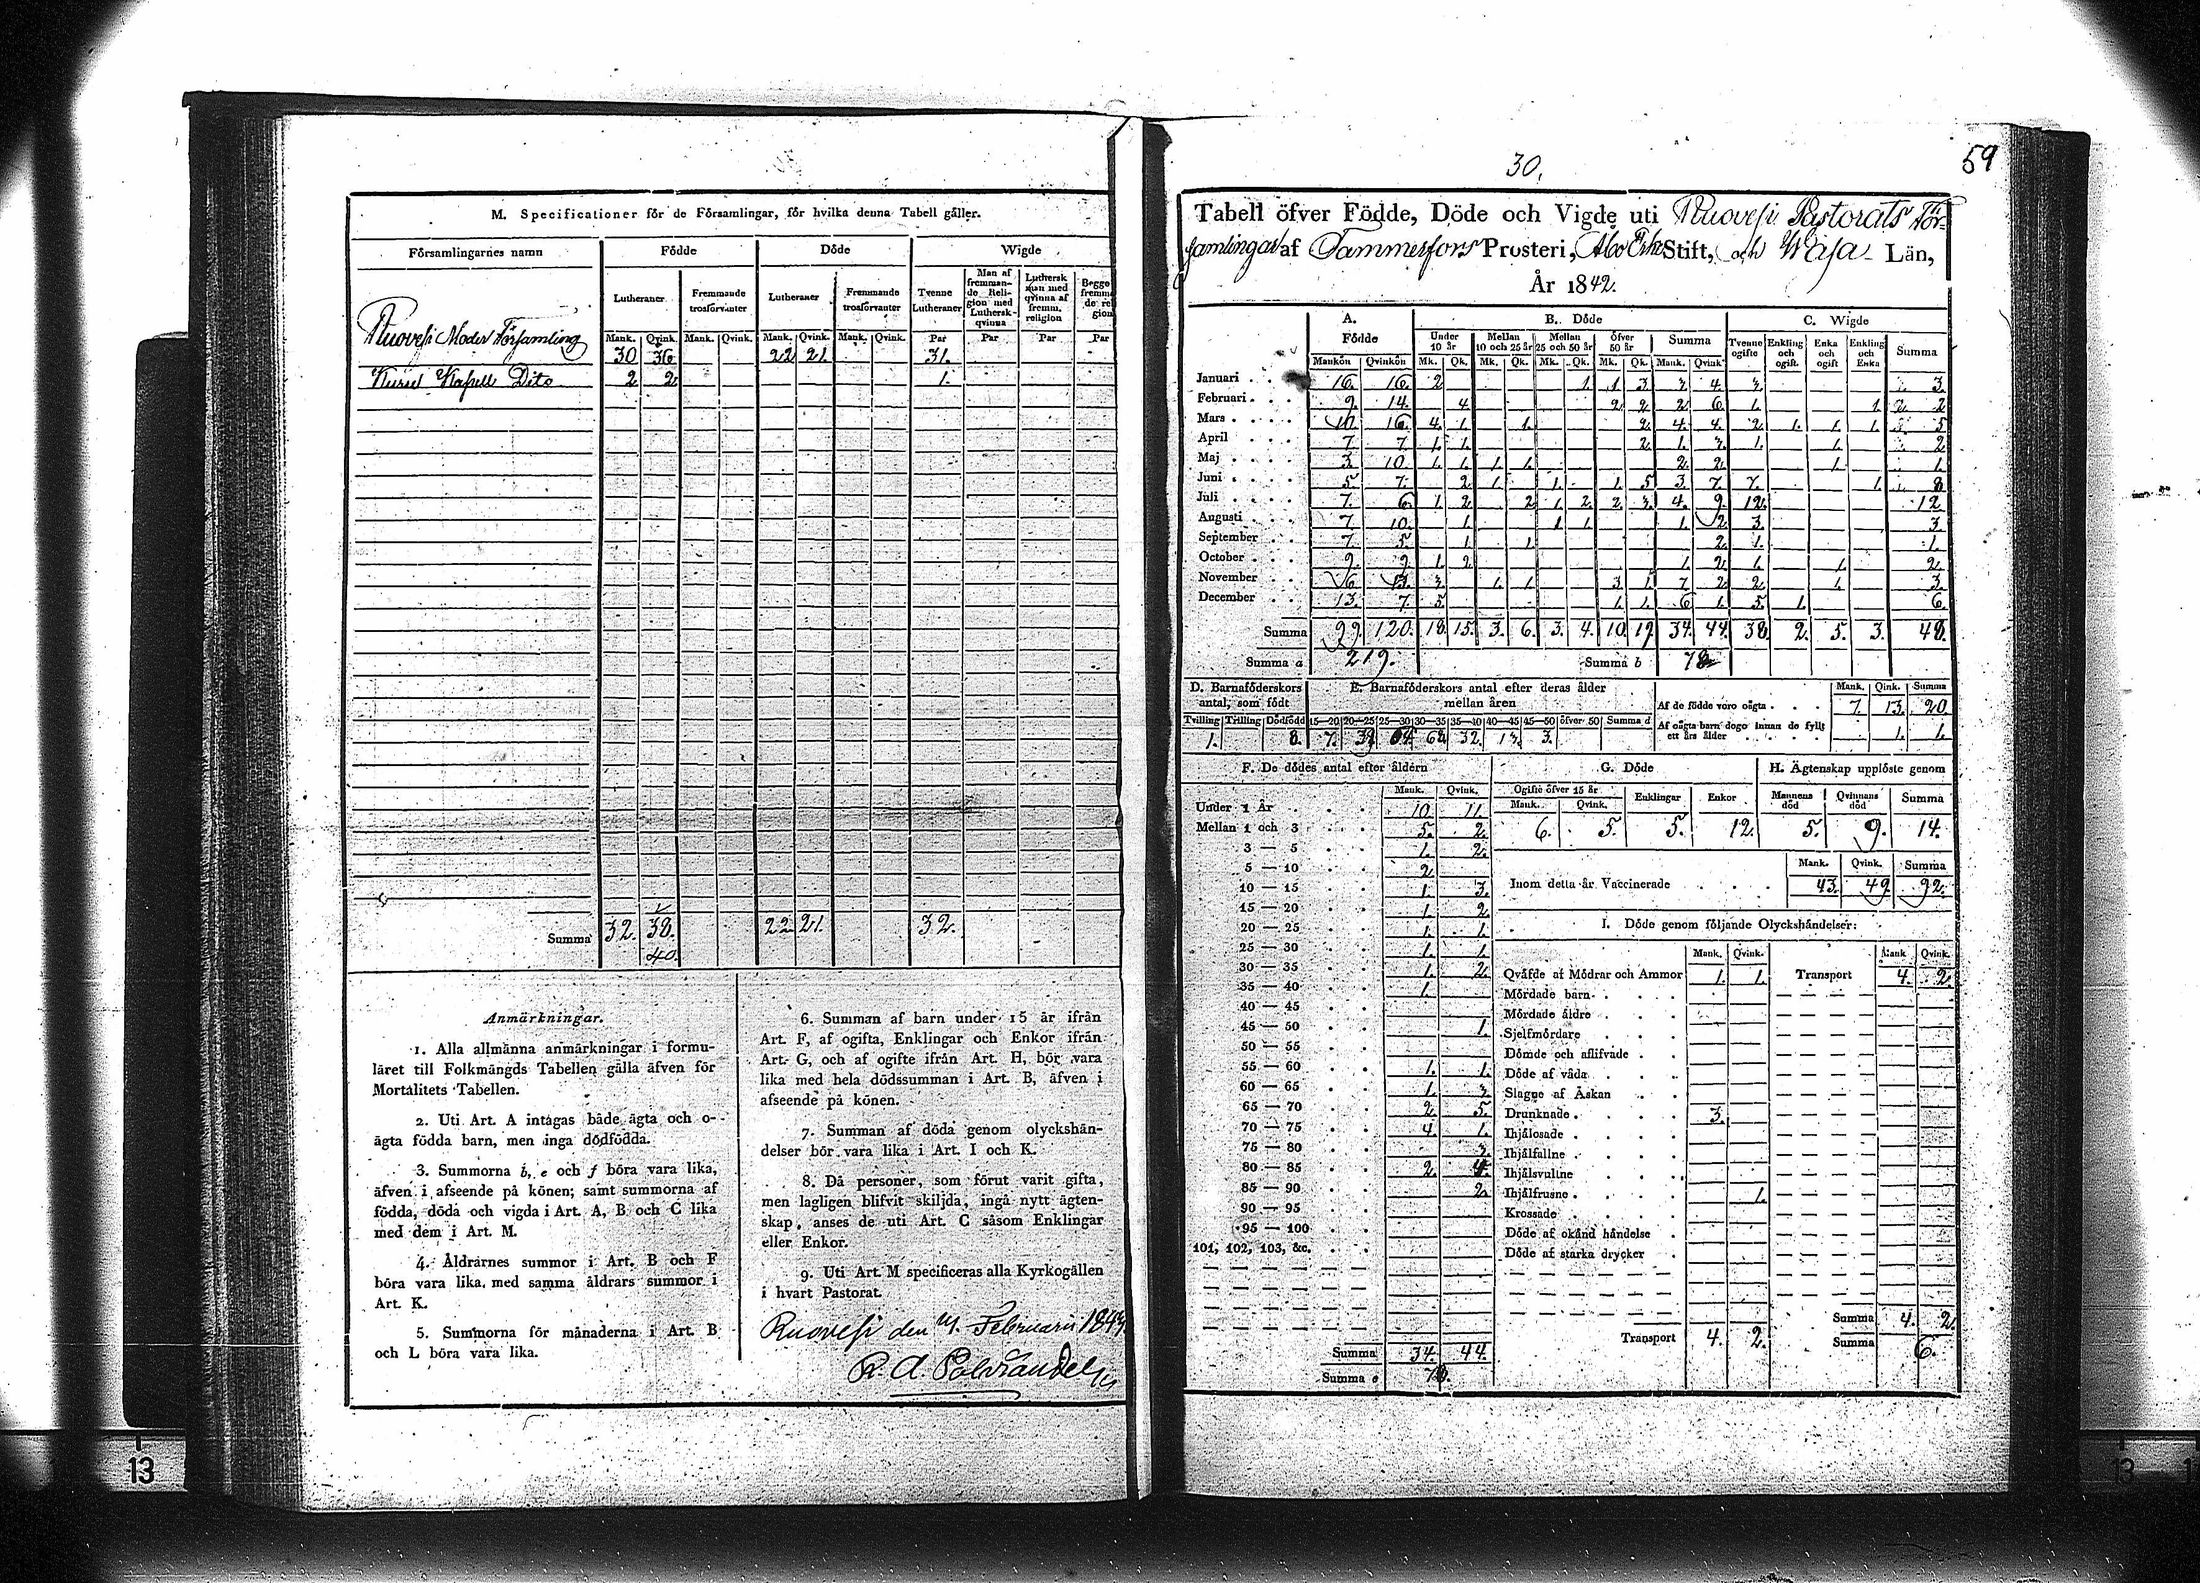 M. Specificationer för de Församlingar, för hvilka denna Tabell gäller.
Församlingarnes namn Födde Döde Wigde
Lutheraner Fremmande trosförvanter Lutheraner Fremmande trosförvanter Tvenne Lutheraner Man af fremmande Religion med Luthersk qvinna Luthersk man med qvinna af fremm. religion Begge fremm de rel gion
Mank. Qvink. Mank. Qvink. Mank. Qvink. Mank. Qvink. Par Par Par Par
Ruovesi Moder Församling 30 36 22 21 31.
Kuru Kapell Dito 2 2 1.
Summa 32. 38. 22 21. 32.
40.
Anmärkningar.
1. Alla allmänna anmärkningar i formu-
läret till Folkmängds Tabellen gälla äfven för
Mortalitets Tabellen.
2. Uti Art. A intagas både ägta och o-
ägta födda barn, men inga dödfödda.
3. Summorna b, e och f böra vara lika,
äfven i afseende på könen; samt summorna af
födda, döda och vigda i Art. A, B och C lika
med dem i Art. M.
4. Åldrarnes summor i Art. B och F
böra vara lika med samma åldrars summor i
Art. K.
5. Summorna för månaderna i Art. B
och L böra vara lika.
6. Summan af barn under 15 år ifrån
Art. F, af ogifta, Enklingar och Enkor ifrån
Art. G, och af ogifte ifrån Art. H, bör vara
lika med hela dödssumman i Art. B, äfven i
afseende på könen.
7. Summan af döda genom olyckshän-
delser bör vara lika i Art. I och K.
8. Då personer, som förut varit gifta,
men lagligen blifvit skiljda, ingå nytt ägten-
skap, anses de uti Art. C såsom Enklingar
eller Enkor.
9. Uti Art. M specificeras alla Kyrkogällen
i hvart Pastorat.
Ruovesi den Februarii
13
30.
59
Tabell öfver Födde, Döde och Vigde uti Ruovesi Pastorats För-
samlingar af Tammerfors Prosteri, Åbo Erke Stift, och Wasa Län,
År 1842.
A. Födde B. Döde C. Wigde
Under 10 år Mellan 10 och 25 år Mellan 25 och 50 år Öfver 50 år Summa Tvenne ogifte Enkling och ogift. Enka och ogift Enkling och Enka Summa
Mankön Qvinkön Mk. Qk. Mk. Qk. Mk. Qk. Mk. Qk. Mank. Qvink.
Januari 16. 16. 2 1. 1 3. 3. 4. 3. 3.
Februari 9. 14. 4. 2. 2. 2. 6. 1. 1. 2
Mars 10. 16. 4. 1. 1. 2. 4. 4. 2. 1. 1. 1. 5
April 7 7. 1. 1. 2. 1. 3. 1. 1. 2
Maj 3. 10. 1. 1. 1. 1. 2. 2. 1. 1.
Juni 5. 7. 2. 1. 1. 1. 5 3. 7. 7. 1. 8
Juli 7. 6. 1 2. 2 1. 2. 2. 3. 4. 9. 12. 12
Augusti 7. 10. 1. 1 1. 1. 2. 3. 3.
September 7. 5. 1. 1. 2. 1. 1.
October 9. 9. 1. 2. 1. 2. 1. 1. 2.
November 6. 13. 3. 1. 1. 3. 1. 7. 2. 2. 1. 3.
December 13. 7. 5. 1. 1. 6. 1. 5. 1. 6.
Summa 99. 120. 18. 15. 3. 6. 3. 4. 10. 19. 34. 44. 38. 2. 5. 3. 48.
Summa a 219. Summa b 78
D. Barnaföderskors antal, som födt E. Barnaföderskors antal efter deras ålder mellan åren Mank. Qink. Summa
Tvilling Trilling Dödfödd 15—20 20—25 25—30 30—35 35—40 40—45 45—50 öfver 50 Summa d
1. 8. 7. 32. 13. 3.
Af de födde voro oägta 7. 13. 20.
Af oägta barn dogo innan de fyllt ett års ålder 1. 1.
F. De dödes antal efter åldern
Mank. Qvink.
Under 1 År 10. 11.
Mellan 1 och 3 5. 2.
3 — 5 1. 2.
5 — 10 2
10 — 15 1. 3.
15 — 20 1. 2.
20 — 25 1. 1.
25 — 30 1. 1.
30 — 35 1. 2.
35 — 40 1.
40 — 45
45 — 50 1.
50 — 55
55 — 60 1. 1.
60 — 65 1. 3.
65 — 70 2. 5.
70 — 75 4. 1.
75 — 80 3.
80 — 85 2. 4.
85 — 90 2.
90 — 95
95 — 100
101, 102, 103, &c.
Summa 34. 44.
Summa e 78.
G. Döde
Ogifte öfver 15 år Enklingar Enkor
Mank. Qvink.
6. 5. 5. 12.
H. Ägtenskap upplöste genom
Mannens död Qvinnans död Summa
5. 9. 14.
Mank. Qvink. Summa
Inom detta år Vaccinerade 43. 49. 92.
I. Döde genom följande Olyckshändelser:
Mank. Qvink. Mank Qvink.
Qväfde af Mödrar och Ammor 1. 1. Transport 4. 2.
Mördade barn
Mördade äldre
Sjelfmördare
Dömde och aflifvade
Döde af våda
Slagne af Åskan
Drunknade 3.
Ihjälosade
Ihjälfallne
Ihjälsvultne
Ihjälfrusne 1.
Krossade
Döde af okänd händelse
Döde af starka drycker
Summa 4. 2.
Transport 4. 2. Summa 6.
13